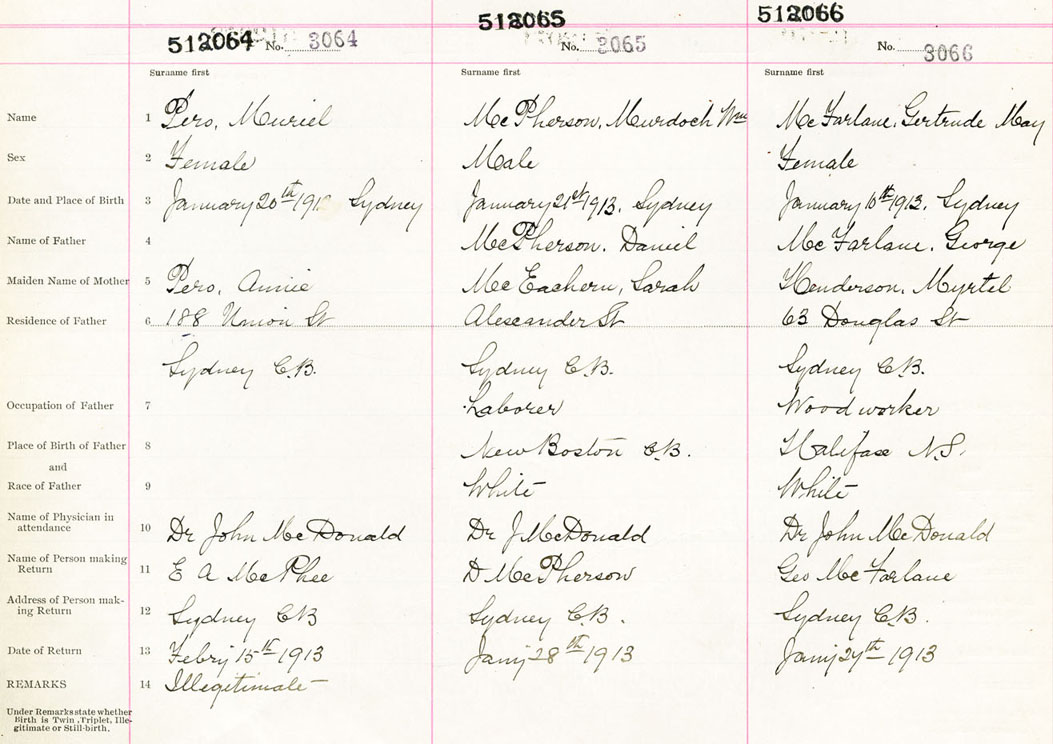 512064 No. 3064
512065 No. 3065
512066 No. 3066
Surname first Surname first Surname first
Name 1 Pero, Muriel McPherson, Murdoch Wm McFarlane, Gertrude May
Sex 2 Female Male Female
Date and Place of Birth 3 January 20th Sydney January 21st 1913. Sydney January 10th 1913. Sydney
Name of Father 4 McPherson. Daniel McFarlane. George
Maiden Name of Mother 5 Pero, Annie McEachern, Sarah Henderson, Myrtel
Residence of Father 6 188 Union St Alexander St 63 Douglas St
Sydney C.B. Sydney C.B. Sydney C.B.
Occupation of Father 7 Laborer Wood worker
Place of Birth of Father 8 New Boston C.B. Halifax N.S.
and
Race of Father 9 White White
Name of Physician in
attendance 10 Dr John McDonald Dr J McDonald Dr John McDonald
Name of Person making
Return 11 E A McPhee D McPherson Geo McFarlane
Address of Person mak-
ing Return 12 Sydney CB Sydney C.B. Sydney C.B.
Date of Return 13 Febry 15th 1913 Jany 28th 1913 Jany 1913
REMARKS 14 Illegitimate
Under Remarks state whether
Birth is Twin, Triplet, Ille-
gitimate or Still-birth.